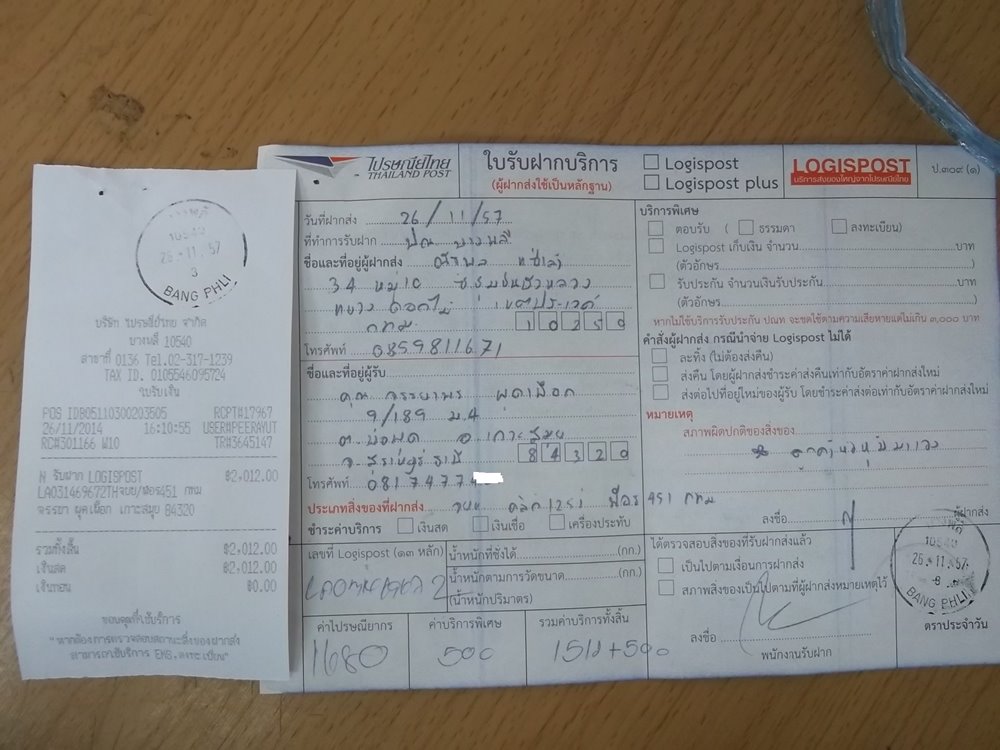 10540
26.11.57
3
BANG PHLI
บริษัท ไปรษณีย์ไทย จำกัด
บางพลี 10540
สาขาที่ 0136 Tel.02-317-1239
TAX ID. 0105546095724
ใบรับเงิน
POS IDB05110300203505 RCPT#17967
26/11/2014 16:10:55 USER#PEERAVUT
RC#301166 W10 TR#3645147
N รับฝาก LOGISPOST ฿2,012.00
LA031469672TH จยย/ฟอร์451 กทม
จรรยา ผุดเผือก เกาะสมุย 84320
รวมทั้งสิ้น ฿2,012.00
เงินสด ฿2,012.00
เงินทอน ฿0.00
ขอบคุณที่ใช้บริการ
"หากต้องการตรวจสอบสถานะสิ่งของฝากส่ง
สามารถใช้บริการ EMS,ลงทะเบียน"
ไปรษณีย์ไทย
THAILAND POST
ใบรับฝากบริการ
(ผู้ฝากส่งใช้เป็นหลักฐาน)
Logispost
Logispost plus
LOGISPOST
บริการส่งของใหญ่จากไปรษณีย์ไทย
ป.๓๐๙ (๑)
วันที่ฝากส่ง 26/11/57
ที่ทำการรับฝาก ปณ บางพลี
ชื่อและที่อยู่ผู้ฝากส่ง
34 หมู่บ้าน
ดอกไม้ เขตประเวศ
กทม. 10250
โทรศัพท์ 0859811671
ชื่อและที่อยู่ผู้รับ
คุณ จรรยาพร ผุดเผือก
9/189 ม.4
ต.บ่อผุด อ.เกาะสมุย
จ.สุราษฎร์ธานี 84320
โทรศัพท์ 0817477
ประเภทสิ่งของที่ฝากส่ง จยย คลิก 125i 451 กทม
ชำระค่าบริการ เงินสด เงินเชื่อ เครื่องประทับ
เลขที่ Logispost (๑๓ หลัก)
น้ำหนักที่ชั่งได้ (กก.)
น้ำหนักตามการวัดขนาด (กก.)
(น้ำหนักปริมาตร)
ค่าไปรษณียากร ค่าบริการพิเศษ รวมค่าบริการทั้งสิ้น
1680 500 1512+500
บริการพิเศษ
ตอบรับ ( ธรรมดา ลงทะเบียน)
Logispost เก็บเงิน จำนวน บาท
(ตัวอักษร )
รับประกัน จำนวนเงินรับประกัน บาท
(ตัวอักษร )
หากไม่ใช้บริการรับประกัน ปณท จะชดใช้ตามความเสียหายแต่ไม่เกิน ๓,๐๐๐ บาท
คำสั่งผู้ฝากส่ง กรณีนำจ่าย Logispost ไม่ได้
ละทิ้ง (ไม่ต้องส่งคืน)
ส่งคืน โดยผู้ฝากส่งชำระค่าส่งคืนเท่ากับอัตราค่าฝากส่งใหม่
ส่งต่อไปที่อยู่ใหม่ของผู้รับ โดยชำระค่าส่งต่อเท่ากับอัตราค่าฝากส่งใหม่
หมายเหตุ
สภาพผิดปกติของสิ่งของ
ลงชื่อ ผู้ฝากส่ง
ได้ตรวจสอบสิ่งของที่รับฝากส่งแล้ว
เป็นไปตามเงื่อนการฝากส่ง
สภาพสิ่งของเป็นไปตามที่ผู้ฝากส่งหมายเหตุไว้
ลงชื่อ
พนักงานรับฝาก
10540
26.11.57
BANG PHLI
ตราประจำวัน